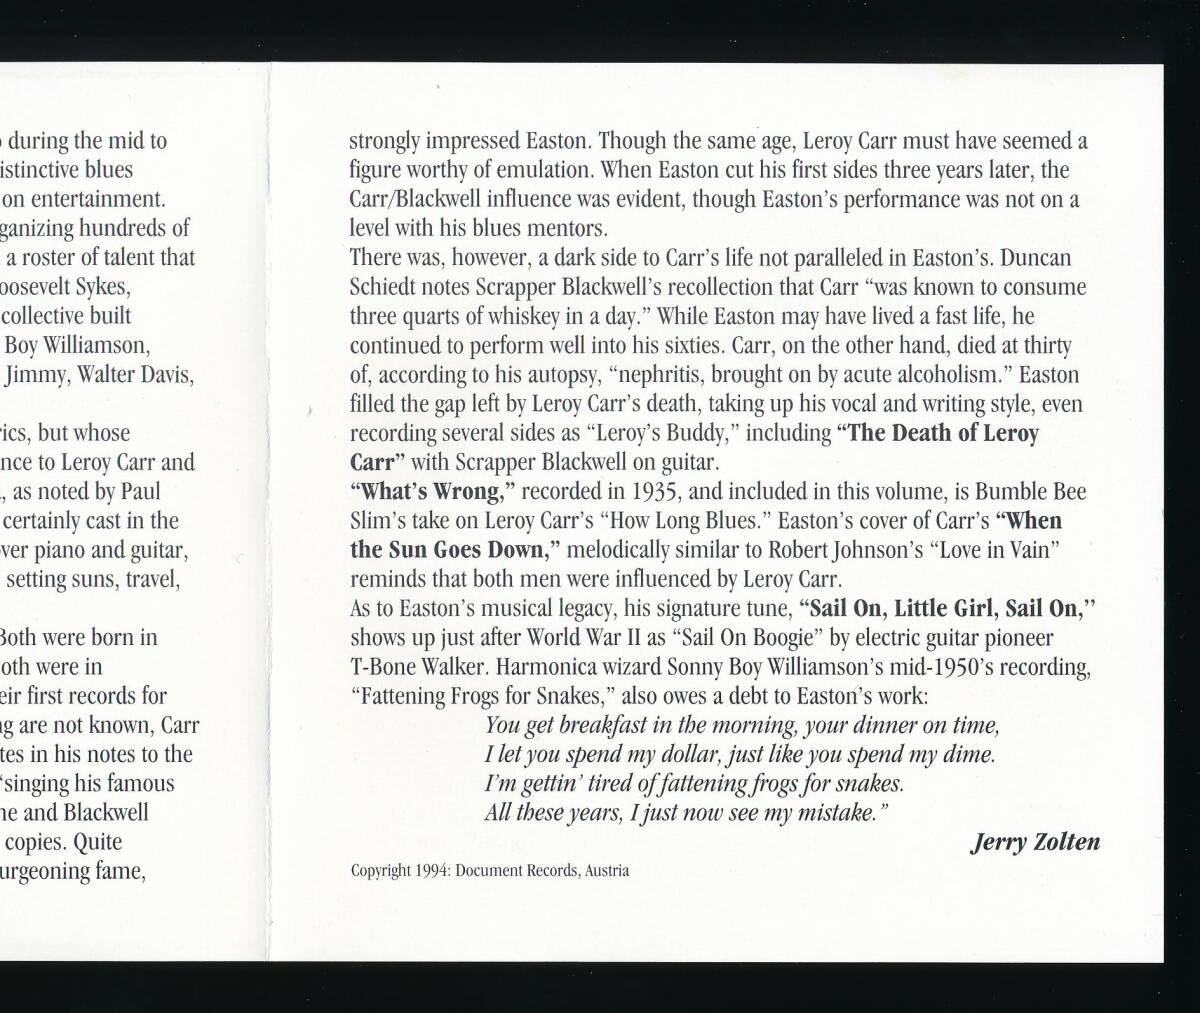 during the mid to
istinctive blues
on entertainment.
ganizing hundreds of
a roster of talent that
oosevelt Sykes,
collective built
Boy Williamson,
Jimmy, Walter Davis,
rics, but whose
nce to Leroy Carr and
, as noted by Paul
certainly cast in the
ver piano and guitar,
setting suns, travel,
Both were born in
oth were in
eir first records for
ng are not known, Carr
tes in his notes to the
‘singing his famous
ne and Blackwell
copies. Quite
urgeoning fame,
strongly impressed Easton. Though the same age, Leroy Carr must have seemed a
figure worthy of emulation. When Easton cut his first sides three years later, the
Carr/Blackwell influence was evident, though Easton's performance was not on a
level with his blues mentors.
There was, however, a dark side to Carr's life not paralleled in Easton's. Duncan
Schiedt notes Scrapper Blackwell's recollection that Carr “was known to consume
three quarts of whiskey in a day.” While Easton may have lived a fast life, he
continued to perform well into his sixties. Carr, on the other hand, died at thirty
of, according to his autopsy, “nephritis, brought on by acute alcoholism.” Easton
filled the gap left by Leroy Carr's death, taking up his vocal and writing style, even
recording several sides as “Leroy's Buddy,” including “The Death of Leroy
Carr” with Scrapper Blackwell on guitar.
“What's Wrong,” recorded in 1935, and included in this volume, is Bumble Bee
Slim's take on Leroy Carr's “How Long Blues.” Easton's cover of Carr's “When
the Sun Goes Down,” melodically similar to Robert Johnson's “Love in Vain”
reminds that both men were influenced by Leroy Carr.
As to Easton's musical legacy, his signature tune, “Sail On, Little Girl, Sail On,’’
shows up just after World War II as “Sail On Boogie” by electric guitar pioneer
T-Bone Walker. Harmonica wizard Sonny Boy Williamson's mid-1950's recording,
“Fattening Frogs for Snakes,” also owes a debt to Easton's work:
You get breakfast in the morning, your dinner on time,
I let you spend my dollar, just like you spend my dime.
I'm gettin' tired of fattening frogs for snakes.
All these years, I just now see my mistake.”
Jerry Zolten
Copyright 1994: Document Records, Austria